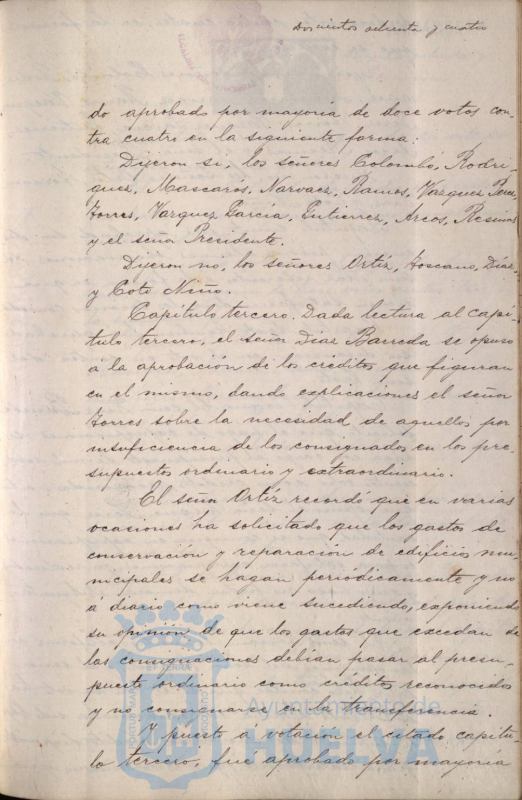 Doscientos ochenta y cuatro
do aprobado por mayoria de doce votos con-
tra cuatro en la siguiente forma:
Dijeron si, los señores Colombó, Rodri-
guez, Mascarós, Narvaez, Ramos, Vazquez Perez,
Torres, Vazquez García, Gutierrez, Arcos,
y el señor Presidente.
Dijeron nó, los señores Ortíz, Toscano, Díaz,
y Coto Niño.
Capítulo tercero. Dada lectura al capí-
tulo tercero, el señor Díaz Barreda se opuso
á la aprobación de los créditos que figuran
en el mismo, dando explicaciones el señor
Torres sobre la necesidad de aquellos por
insuficiencia de los consignados en los pre-
supuestos ordinario y extraordinario.
El señor Ortíz recordó que en varias
ocasiones ha solicitado que los gastos de
conservación y reparación de edificios mu-
nicipales se hagan periódicamente y no
á diario como viene sucediendo, exponiendo
su opinión de que los gastos que excedan de
las consignaciones debían pasar al presu-
puesto ordinario como créditos reconocidos
y no consignarse en la transferencia.
Ayuntamiento de
HUELVA
Y puesto á votación el citado capítu-
lo tercero, fue aprobado por mayoría